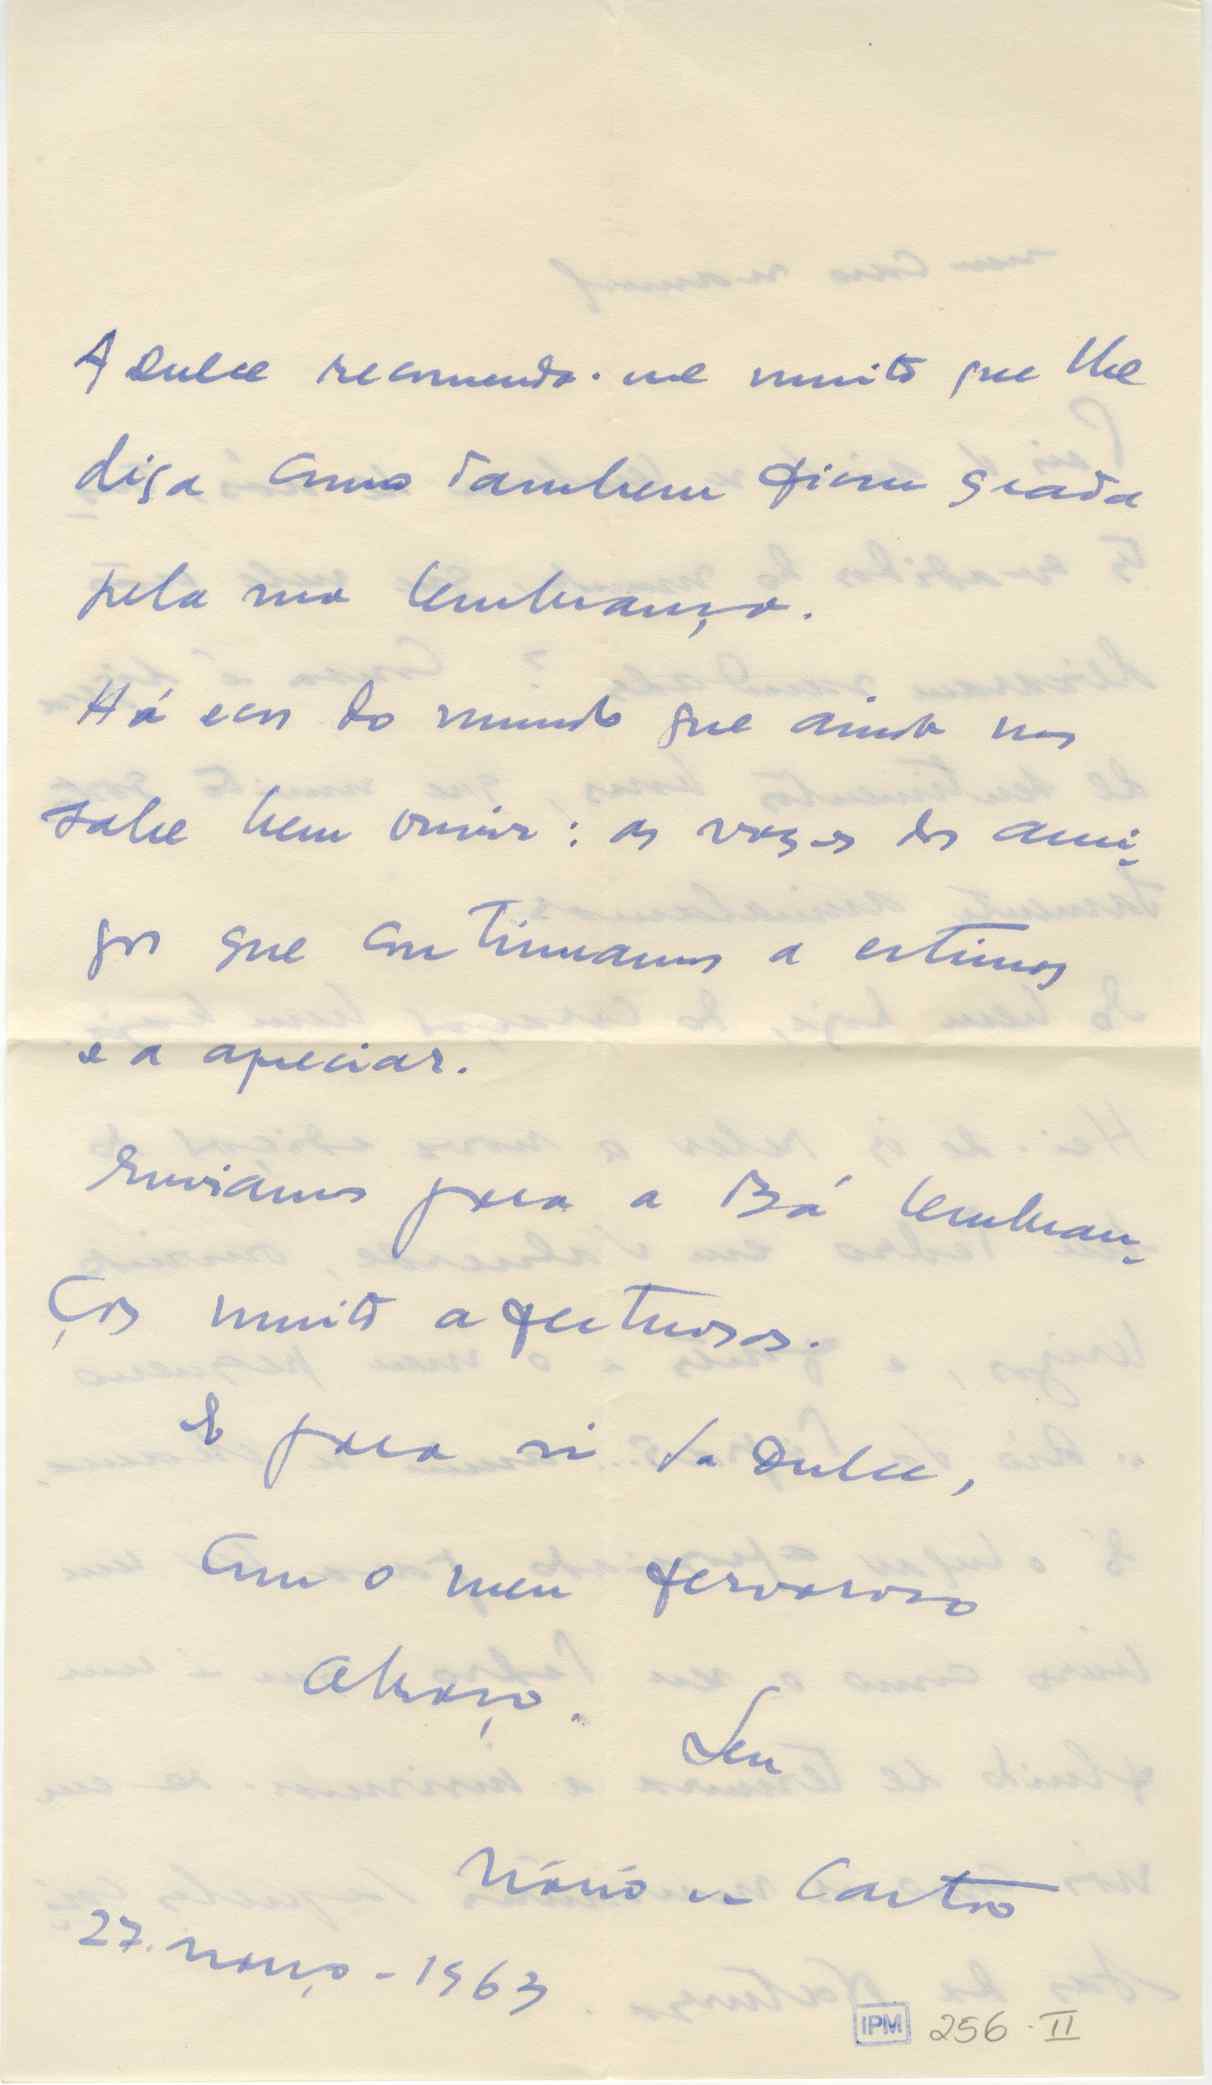 A Dulce recomenda-me muito que lhe
diga como tambem ficou grata
pela sua lembrança.
Há ecos do mundo que ainda nos
sabe bem ouvir: as vozes dos ami-
gos que continuamos a estimar
e a apreciar.
Enviamos para a Bá lembran-
ças muito afectuosas.
E para si da Dulce,
com o meu fervoroso
abraço.
Seu
Mário de Castro
27. março - 1963
IPM 256-II